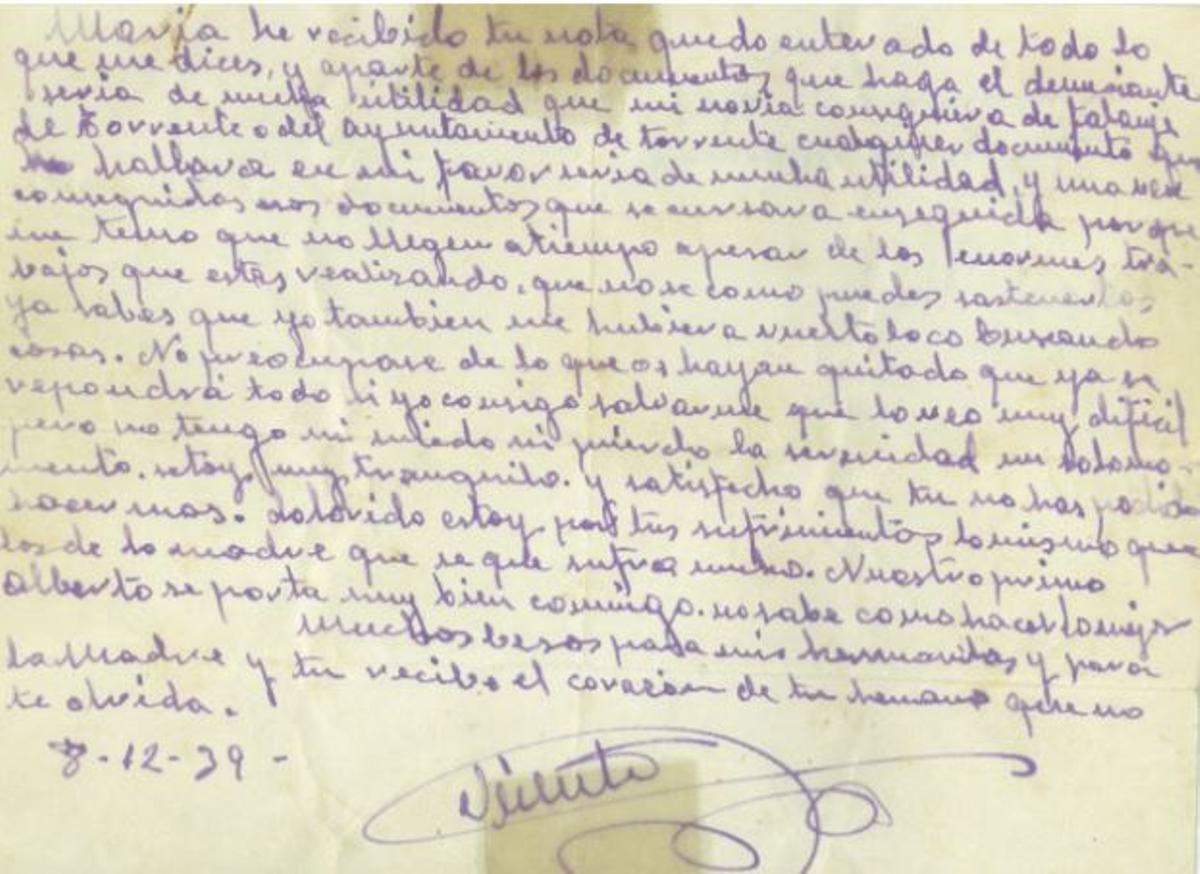 Maria he recibido tu nota, quedo enterado de todo lo
que me dices, y aparte de los documentos que haga el denunciante
seria de mucha utilidad que mi novia consiguiera de falanje
de Torrente o del ayuntamiento de torrente cualquier documento que
hallara en mi favor seria de mucha utilidad, y una vez
conseguidos esos documentos que se cursara enseguida porque
me temo que no llegen a tiempo apesar de los enormes tra-
bajos que estas realizando, que no se como puedes sostenerlos
ya sabes que yo tambien me hubiera vuelto loco buscando
cosas. No preocuparse de lo que os hayan quitado que ya se
repondrá todo si yo consigo salvarme que lo veo muy dificil
pero no tengo ni miedo ni pierdo la serenidad un solo mo-
mento. estoy muy tranquilo. y satisfecho que tu no has podido
hacer mas. dolorido estoy por tus sufrimientos lo mismo que
los de la madre que se que sufre mucho. Nuestro primo
alberto se porta muy bien comigo. no sabe como hacerlo mejor
Muchos besos para mis hermanitas y para
la Madre y tu recibe el corazon de tu hermano que no
te olvida.
8-12-39-
Vicente